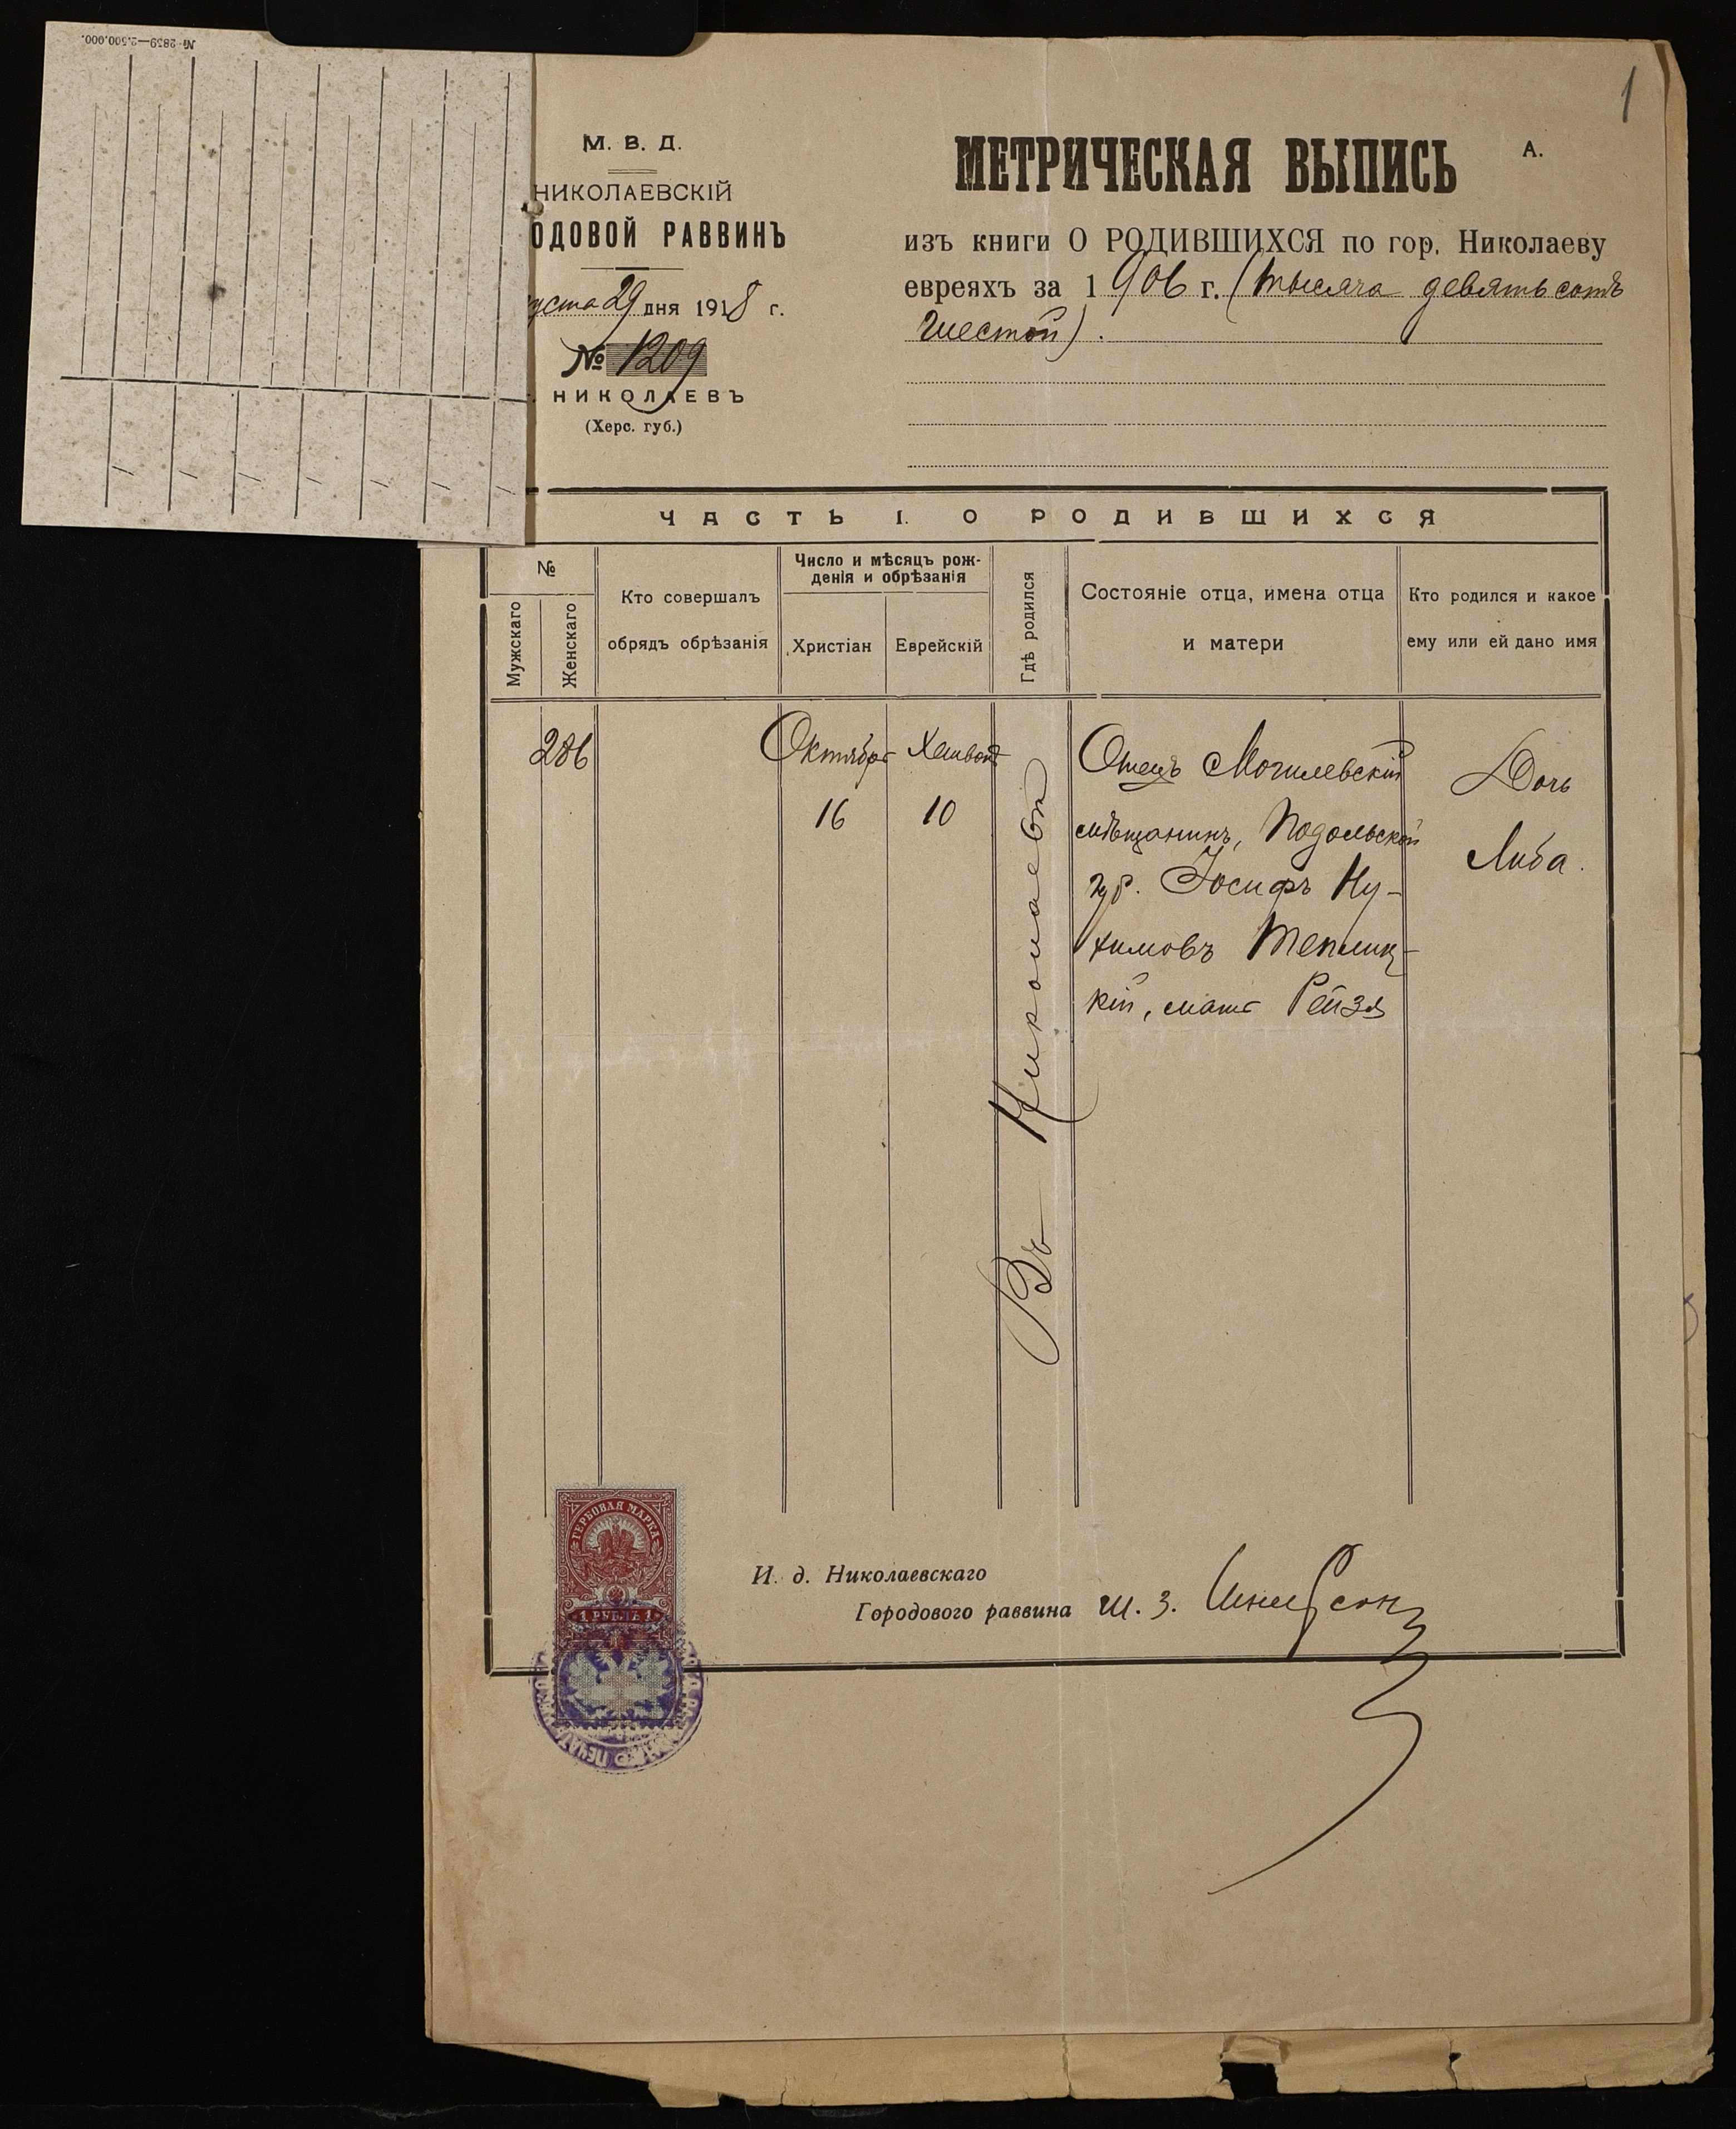 № 2839—2.500.000.
1
М. В. Д.
НИКОЛАЕВСКІЙ
ОДОВОЙ РАВВИНЪ
уста 29 дня 1918 г.
№ 1209
НИКОЛАЕВЪ
(Херс. губ.)
МЕТРИЧЕСКАЯ ВЫПИСЬ
А.
изъ книги О РОДИВШИХСЯ по гор. Николаеву
евреяхъ за 1906 г. (тысяча девятьсотъ
шестой).
ЧАСТЬ I. О РОДИВШИХСЯ
№
Мужскаго
Женскаго
Кто совершалъ
обрядъ обрѣзанія
Число и мѣсяцъ рож-
денія и обрѣзанія
Христіан
Еврейскій
Гдѣ родился
Состояніе отца, имена отца
и матери
Кто родился и какое
ему или ей дано имя
286
Октября
16
Хешвонъ
10
Въ Николаевѣ
Отецъ Могилевскій
мѣщанинъ, Подольской
губ. Іосифъ Ну-
химовъ Теплиц-
кій, мать Рейзя
Дочь
Либа.
ГЕРБОВАЯ МАРКА
1 РУБЛЬ 1
И. д. Николаевскаго
Городового раввина Ш. З. Шнеерсонъ